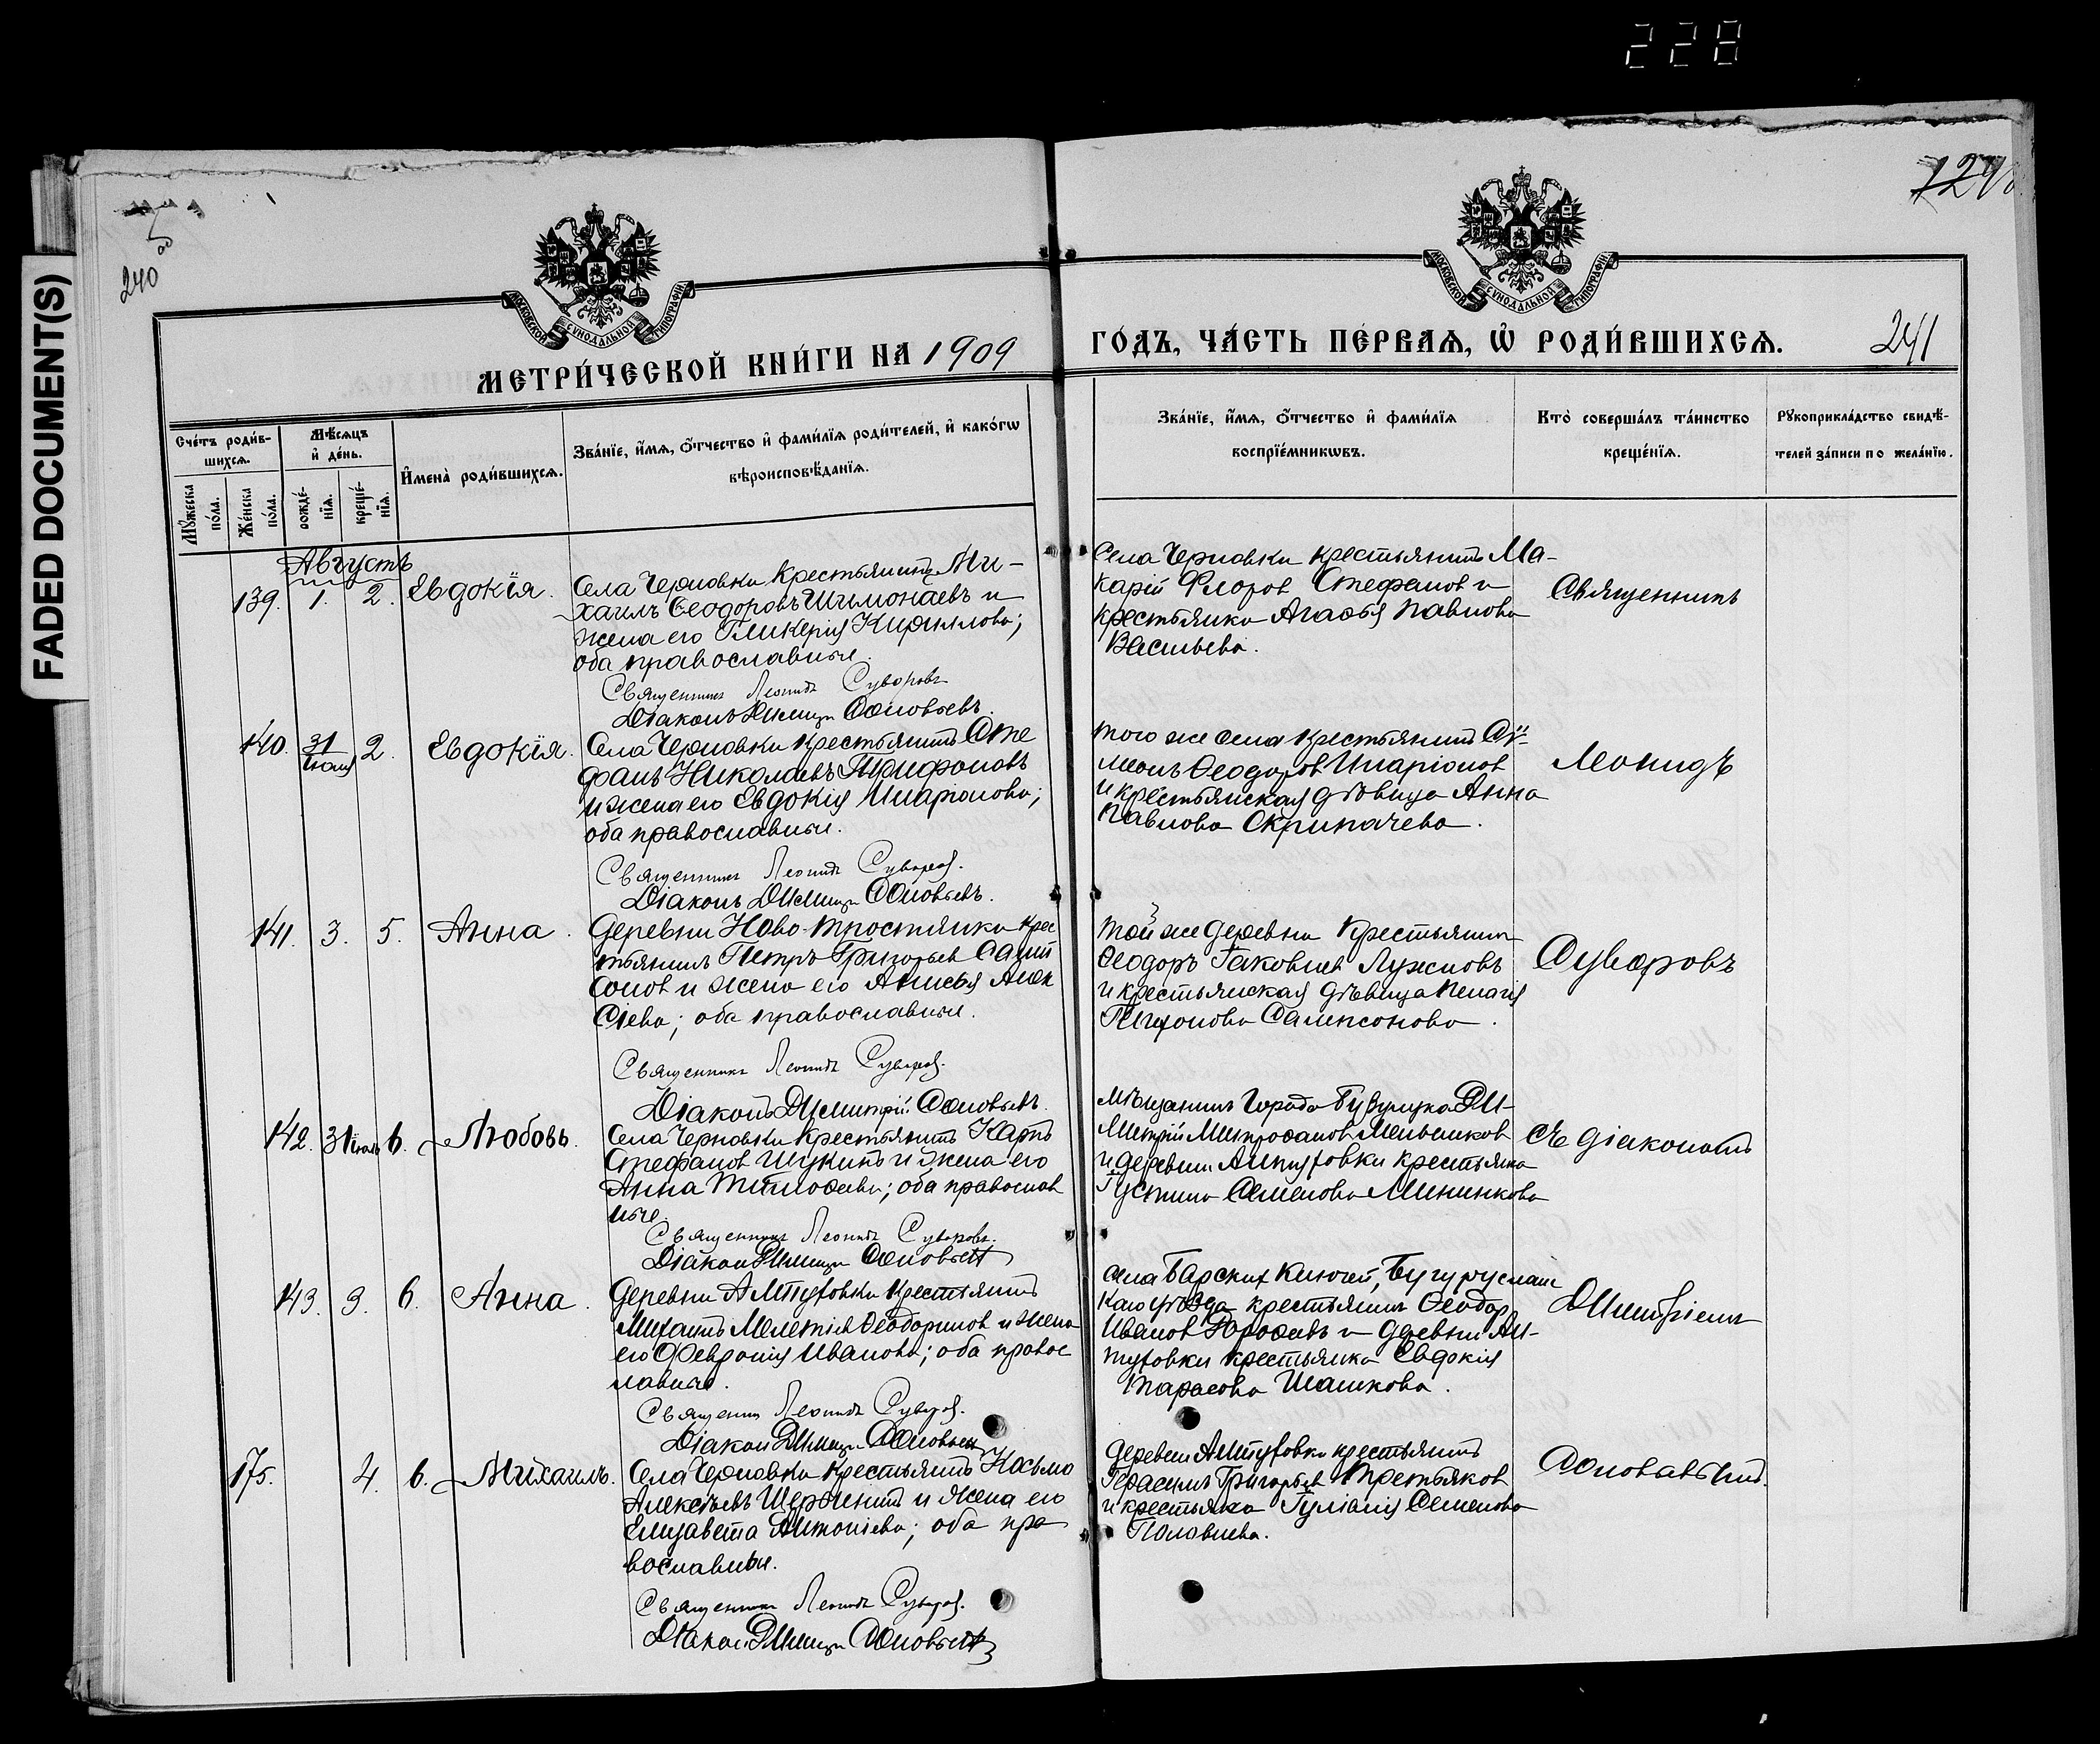 228
FADED DOCUMENT(S)
240
124
МОСКОВСКОЙ СѴНОДАЛЬНОЙ ТИПОГРАФІИ
МОСКОВСКОЙ СѴНОДАЛЬНОЙ ТИПОГРАФІИ
МЕТРИ́ЧЕСКОЙ КНИ́ГИ НА 1909
ГО́ДЪ, ЧА́СТЬ ПЕ́РВАѦ, Ѡ҆ РОДИ́ВШИХСѦ.
241
Сче́тъ роди́в-
шихсѧ.
Мѹжеска по́ла.
Же́нска по́ла.
Мѣ́сѧцъ
и҆ де́нь.
рожде́-
нїѧ.
креще́-
нїѧ.
И҆мена̀ роди́вшихсѧ.
Зва́нїе, и҆́мѧ, ѻ҆́тчество и҆ фами́лїѧ роди́телей, и҆ како́гѡ
вѣроисповѣ́данїѧ.
Зва́нїе, и҆́мѧ, ѻ҆́тчество и҆ фами́лїѧ
воспрїе́мникѡвъ.
Кто̀ соверша́лъ та́инство
креще́нїѧ.
Рꙋкоприкла́дство свидѣ́-
телей за́писи по жела́нїю.
Августъ
139. 1. 2. Евдокія.
Села Черновки крестьянинъ Ми-
хаилъ Ѳеодоровъ Шимонаевъ и
жена его Гликерія Кириллова;
оба православные.
Священникъ Леонидъ Суворовъ
Діаконъ Димитр Соловьевъ.
Села Черновки крестьянинъ Ма-
карій Флоров Стефанов и
крестьянка Агаѳья Павлова
Васильева.
Священникъ
140. 31 іюля 2. Евдокія.
Села Черновки крестьянинъ Сте
фанъ Николаевъ Трифоновъ
и жена его Евдокія Иларіонова;
оба православные.
Священникъ Леонидъ Суворов.
Діаконъ Димитр Соловьевъ.
того же села крестьянинъ Си-
меонъ Ѳеодоров Иларіонов
и крестьянская дѣвица Анна
Павлова Скрипачева.
Леонидъ
141. 3. 5. Анна.
Деревни Ново-Тростянки крес
тьянинъ Петръ Григорьев Самп
сонов и жена его Анисья Алек
сѣева; оба православные.
Священникъ Леонидъ Суворов.
Діаконъ Димитрій Соловьевъ.
той же деревни крестьянин
Ѳеодоръ Іаковлев Лужновъ
и крестьянская дѣвица Пелагія
Тихонова Сампсонова.
Суворовъ
142. 31 іюль 6. Любовь.
Села Черновки крестьянинъ Карпъ
Стефанов Щукинъ и жена его
Анна Тимоѳеева; оба православ
ные.
Священникъ Леонидъ Суворовъ.
Діакон Димитр Соловьев
мѣщанинъ города Бузулука Ди-
митрій Митрофанов Мельников
и деревни крестьянка
Іустина Семенова Мининкова
съ діакономъ
143. 3. 6. Анна.
Деревни крестьянинъ
Михаилъ Мелетіев Ѳеодоринов и жена
его Февронія Иванова; оба правос
лавные.
Священник Леонидъ Суворов.
Діакон Димитр Соловьев
села Барских Ключей, Бугуруслан
каго уѣзда крестьянин Ѳеодор
Иванов и деревни
крестьянка Евдокія
Тарасова Шашкова.
Димитріемъ
175. 4. 6. Михаилъ.
Села Черновки крестьянинъ Косьма
Алексѣевъ и жена его
Елизавета Антоніева; оба пра
вославные.
Священникъ Леонидъ Суворов.
Діакон Димитр Соловьев
Деревни крестьянинъ
Герасимъ Григорьев Третьяков
и крестьянка Іуліанія Семенова
Половнева.
Соловьевымъ.